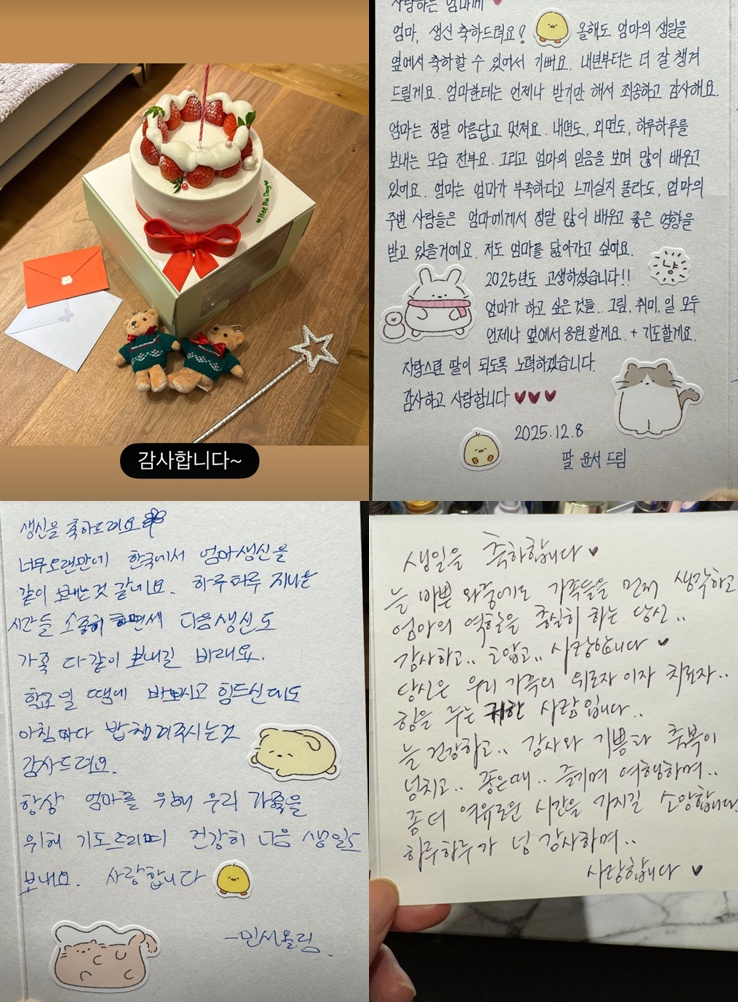 감사합니다~
사랑하는 엄마께
엄마, 생신 축하드려요! 올해도 엄마의 생일을
옆에서 축하할 수 있어서 기뻐요. 내년부터는 더 잘 챙겨
드릴게요. 엄마한테는 언제나 받기만 해서 죄송하고 감사해요.
엄마는 정말 아름답고 멋져요. 내면도, 외면도, 하루하루를
보내는 모습 전부요. 그리고 엄마의 믿음을 보며 많이 배우고
있어요. 엄마는 엄마가 부족하다고 느끼실지 몰라도, 엄마의
주변 사람들은 엄마에게서 정말 많이 배우고 좋은 영향을
받고 있을거예요. 저도 엄마를 닮아가고 싶어요.
2025년도 고생하셨습니다!!
엄마가 하고 싶은 것들.. 그림, 취미, 일 모두
언제나 옆에서 응원할게요. + 기도할게요.
자랑스런 딸이 되도록 노력하겠습니다.
감사하고 사랑합니다 ♥♥♥
2025.12.8
딸 윤서 드림
생신을 축하드려요
너무오랜만에 한국에서 엄마생신을
같이 보내는것 같네요. 하루하루 지나는
시간들 소중히 하면서 다음생신도
가족 다같이 보내길 바래요.
학교일 땜에 바쁘시고 힘드신데도
아침마다 밥챙겨주시는것
감사드려요.
항상 엄마를 위해 우리 가족을
위해 기도드리며 건강히 다음 생일도
보내요. 사랑합니다
-민서올림.
생일을 축하합니다 ♥
늘 바쁜 와중에도 가족들을 먼저 생각하고
엄마의 역할을 충실히 하는 당신..
감사하고.. 고맙고.. 사랑합니다 ♥
당신은 우리 가족의 위로자이자 치료자..
힘을 주는 귀한 사람입니다..
늘 건강하고.. 감사와 기쁨과 축복이
넘치고.. 좋은때.. 즐기며 여행하며..
좀 더 여유로운 시간을 가지길 소망합니다.
하루하루가 넘 감사하며..
사랑합니다 ♥